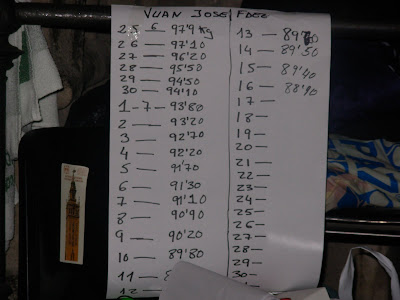 VUAN JOSE FDEZ
25 - 6 - 97'9 Kg
26 — 97'10
27 — 96'20
28 — 95'50
29 — 94'50
30 — 94'10
1 - 7 - 93'80
2 — 93'20
3 — 92'70
4 — 92'20
5 — 91'70
6 — 91'30
7 — 91'10
8 — 90'90
9 — 90'20
10 — 89'80
11 — 8
12
13 — 89'70
14 — 89'50
15 — 89'40
16 — 88'90
17 —
18 —
19 —
20 —
21 —
22 —
23 —
24 —
25 —
26 —
27 —
28 —
29 —
30 —